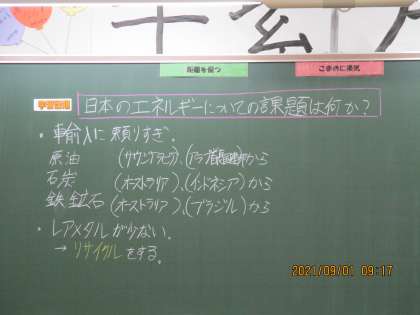 距離を保つ
こまめに換気
学習課題
日本のエネルギーについての課題は何か?
・輸入に頼りすぎ。
原油 (サウジアラビア)、(アラブ首長国連邦)から
石炭 (オーストラリア)、(インドネシア)から
鉄鉱石 (オーストラリア)、(ブラジル)から
・レアメタルが少ない。
→ リサイクルをする。
2021/09/01 09:17